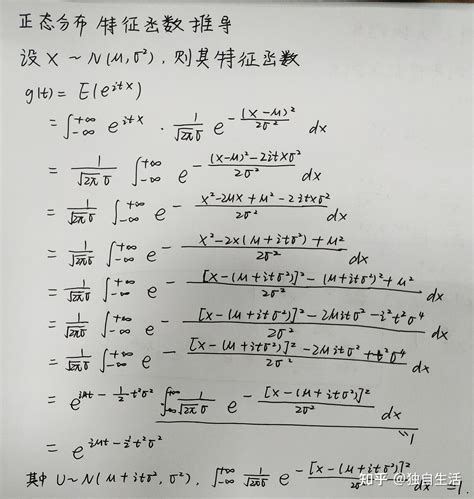 正态分布 特征函数 推导
设 X ~ N(μ, σ²), 则其特征函数
g(t) = E(e^{itX})
= ∫_{-∞}^{+∞} e^{itX} · \frac{1}{\sqrt{2π}σ} e^{-\frac{(X-μ)²}{2σ²}} dx
= \frac{1}{\sqrt{2π}σ} ∫_{-∞}^{+∞} e^{-\frac{(X-μ)²-2itXσ²}{2σ²}} dx
= \frac{1}{\sqrt{2π}σ} ∫_{-∞}^{+∞} e^{-\frac{X²-2μX+μ²-2itXσ²}{2σ²}} dx
= \frac{1}{\sqrt{2π}σ} ∫_{-∞}^{+∞} e^{-\frac{X²-2X(μ+itσ²)+μ²}{2σ²}} dx
= \frac{1}{\sqrt{2π}σ} ∫_{-∞}^{+∞} e^{-\frac{[X-(μ+itσ²)]²-(μ+itσ²)²+μ²}{2σ²}} dx
= \frac{1}{\sqrt{2π}σ} ∫_{-∞}^{+∞} e^{-\frac{[X-(μ+itσ²)]²-2μitσ²-i²t²σ⁴}{2σ²}} dx
= \frac{1}{\sqrt{2π}σ} ∫_{-∞}^{+∞} e^{-\frac{[X-(μ+itσ²)]²-2μitσ²+t²σ⁴}{2σ²}} dx
= e^{iμt-\frac{1}{2}t²σ²} ∫_{-∞}^{+∞} \frac{1}{\sqrt{2π}σ} e^{-\frac{[X-(μ+itσ²)]²}{2σ²}} dx
=1
= e^{iμt-\frac{1}{2}t²σ²}
其中 U~N(μ+itσ², σ²), ∫_{-∞}^{+∞} \frac{1}{\sqrt{2π}σ} e^{-\frac{[X-(μ+itσ²)]²}{2σ²}} dx = 1.
知乎 @独自生活